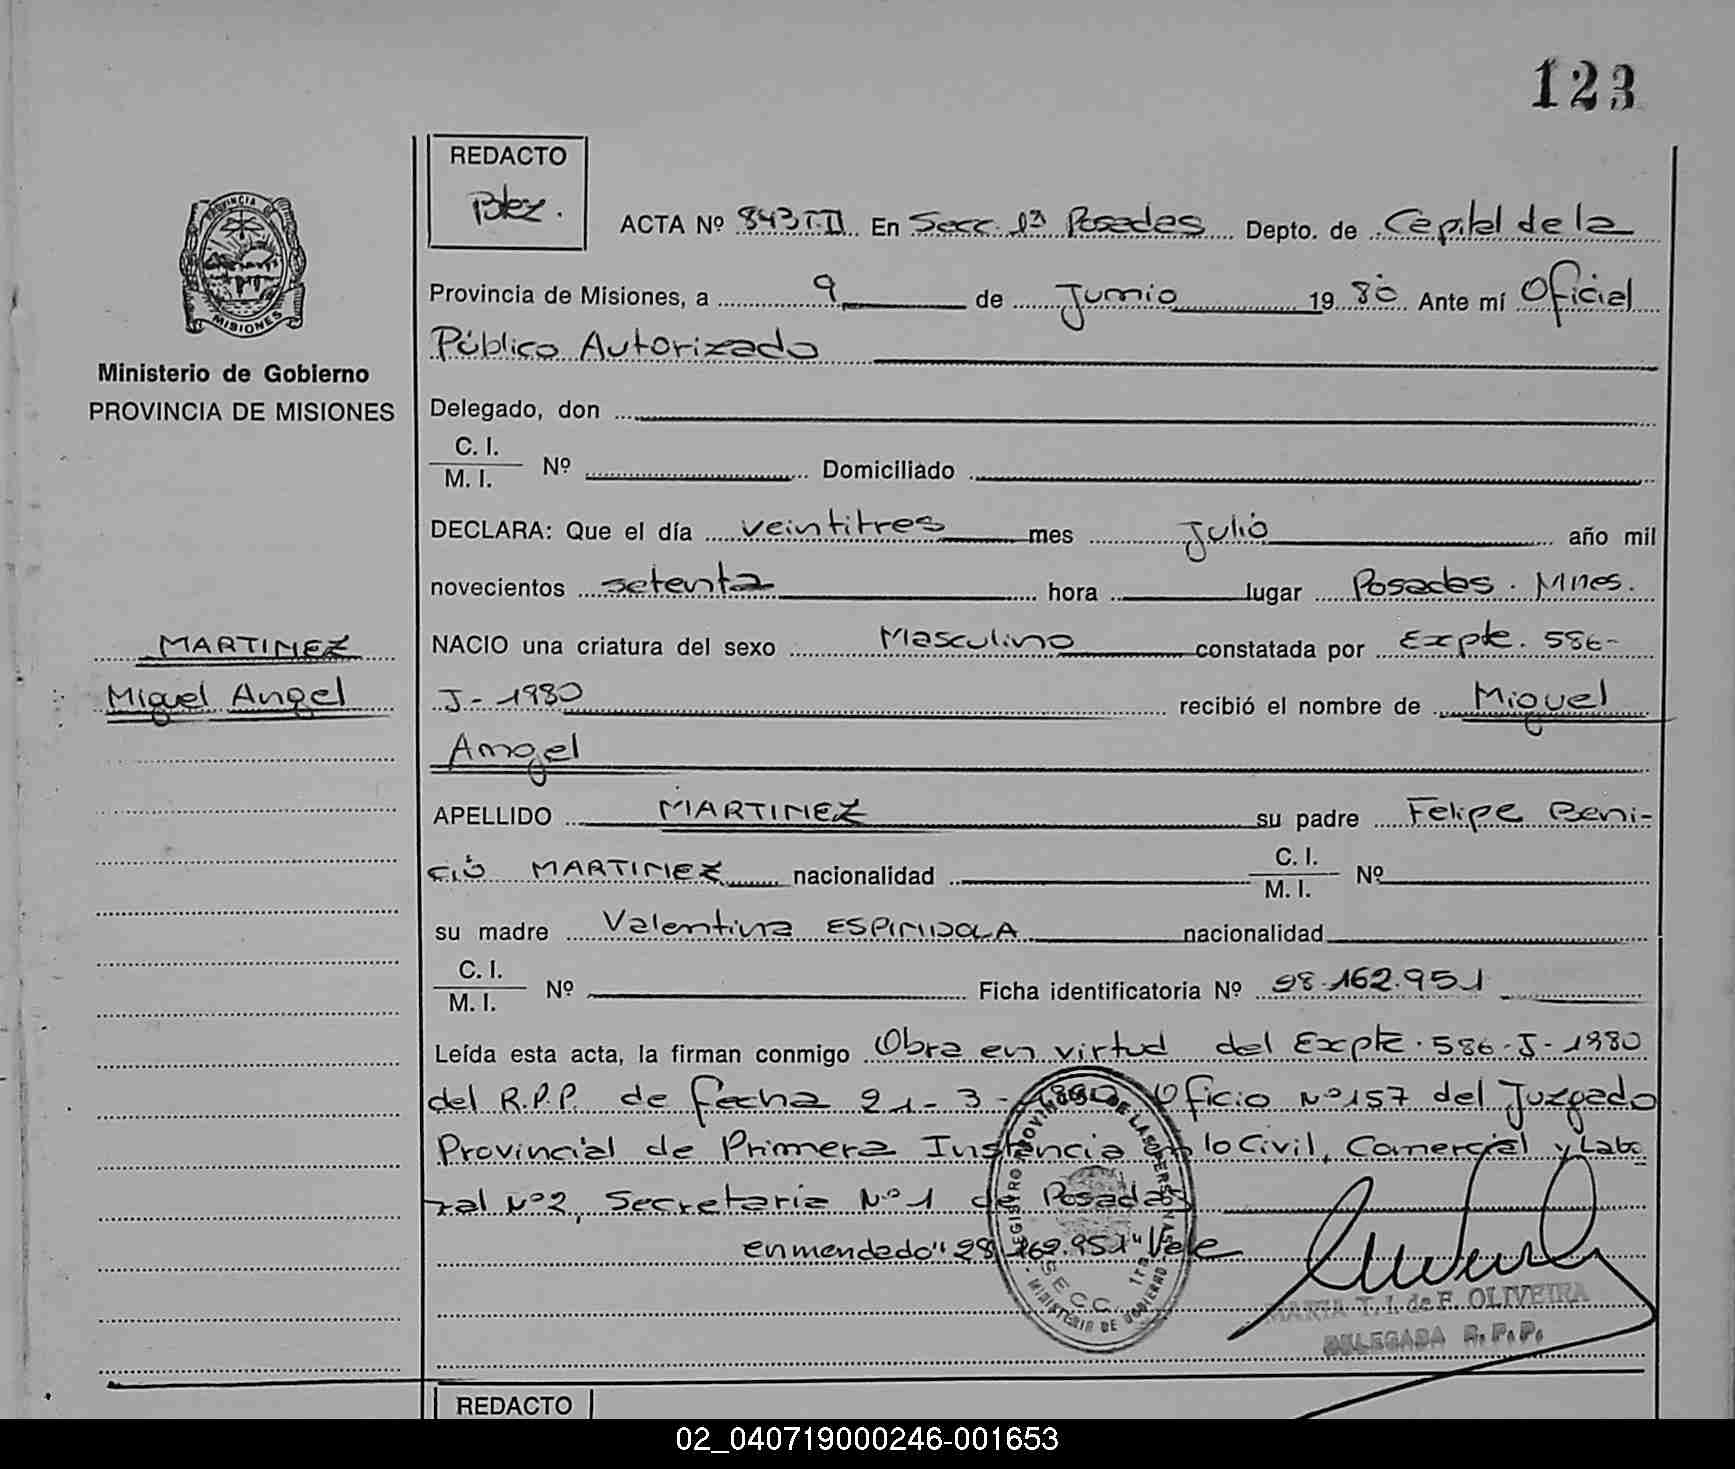 123
REDACTO
ACTA Nº 843 T.II En Secc. 1ª Posadas Depto. de Capital de la
Provincia de Misiones, a 9 de Junio 1980 Ante mí Oficial
Público Autorizado
PROVINCIA
MISIONES
Ministerio de Gobierno
PROVINCIA DE MISIONES
Delegado, don
C. I.
M. I. Nº Domiciliado
DECLARA: Que el día veintitres mes Julio año mil
novecientos setenta hora lugar Posadas. Mnes.
MARTINEZ
Miguel Angel
NACIO una criatura del sexo Masculino constatada por Expte. 586-
J-1980 recibió el nombre de Miguel
Angel
APELLIDO MARTINEZ su padre Felipe Beni-
cio MARTINEZ nacionalidad C. I. M. I. Nº
su madre Valentina ESPINDOLA nacionalidad
C. I.
M. I. Nº Ficha identificatoria Nº 98.162.951
Leída esta acta, la firman conmigo Obra en virtud del Expte. 586-J-1980
del R.P.P. de fecha 21-3-1980 Oficio Nº 157 del Juzgado
Provincial de Primera Instancia lo Civil, Comercial y Labo
ral Nº2, Secretaria Nº 1 de Posadas
enmendado "98.162.951" Vale
REGISTRO PROVINCIAL DE LAS PERSONAS
SECC. 1ra
MINISTERIO DE GOBIERNO
MARIA T. I. de F. OLIVEIRA
DELEGADA R.P.P.
REDACTO
02_040719000246-001653